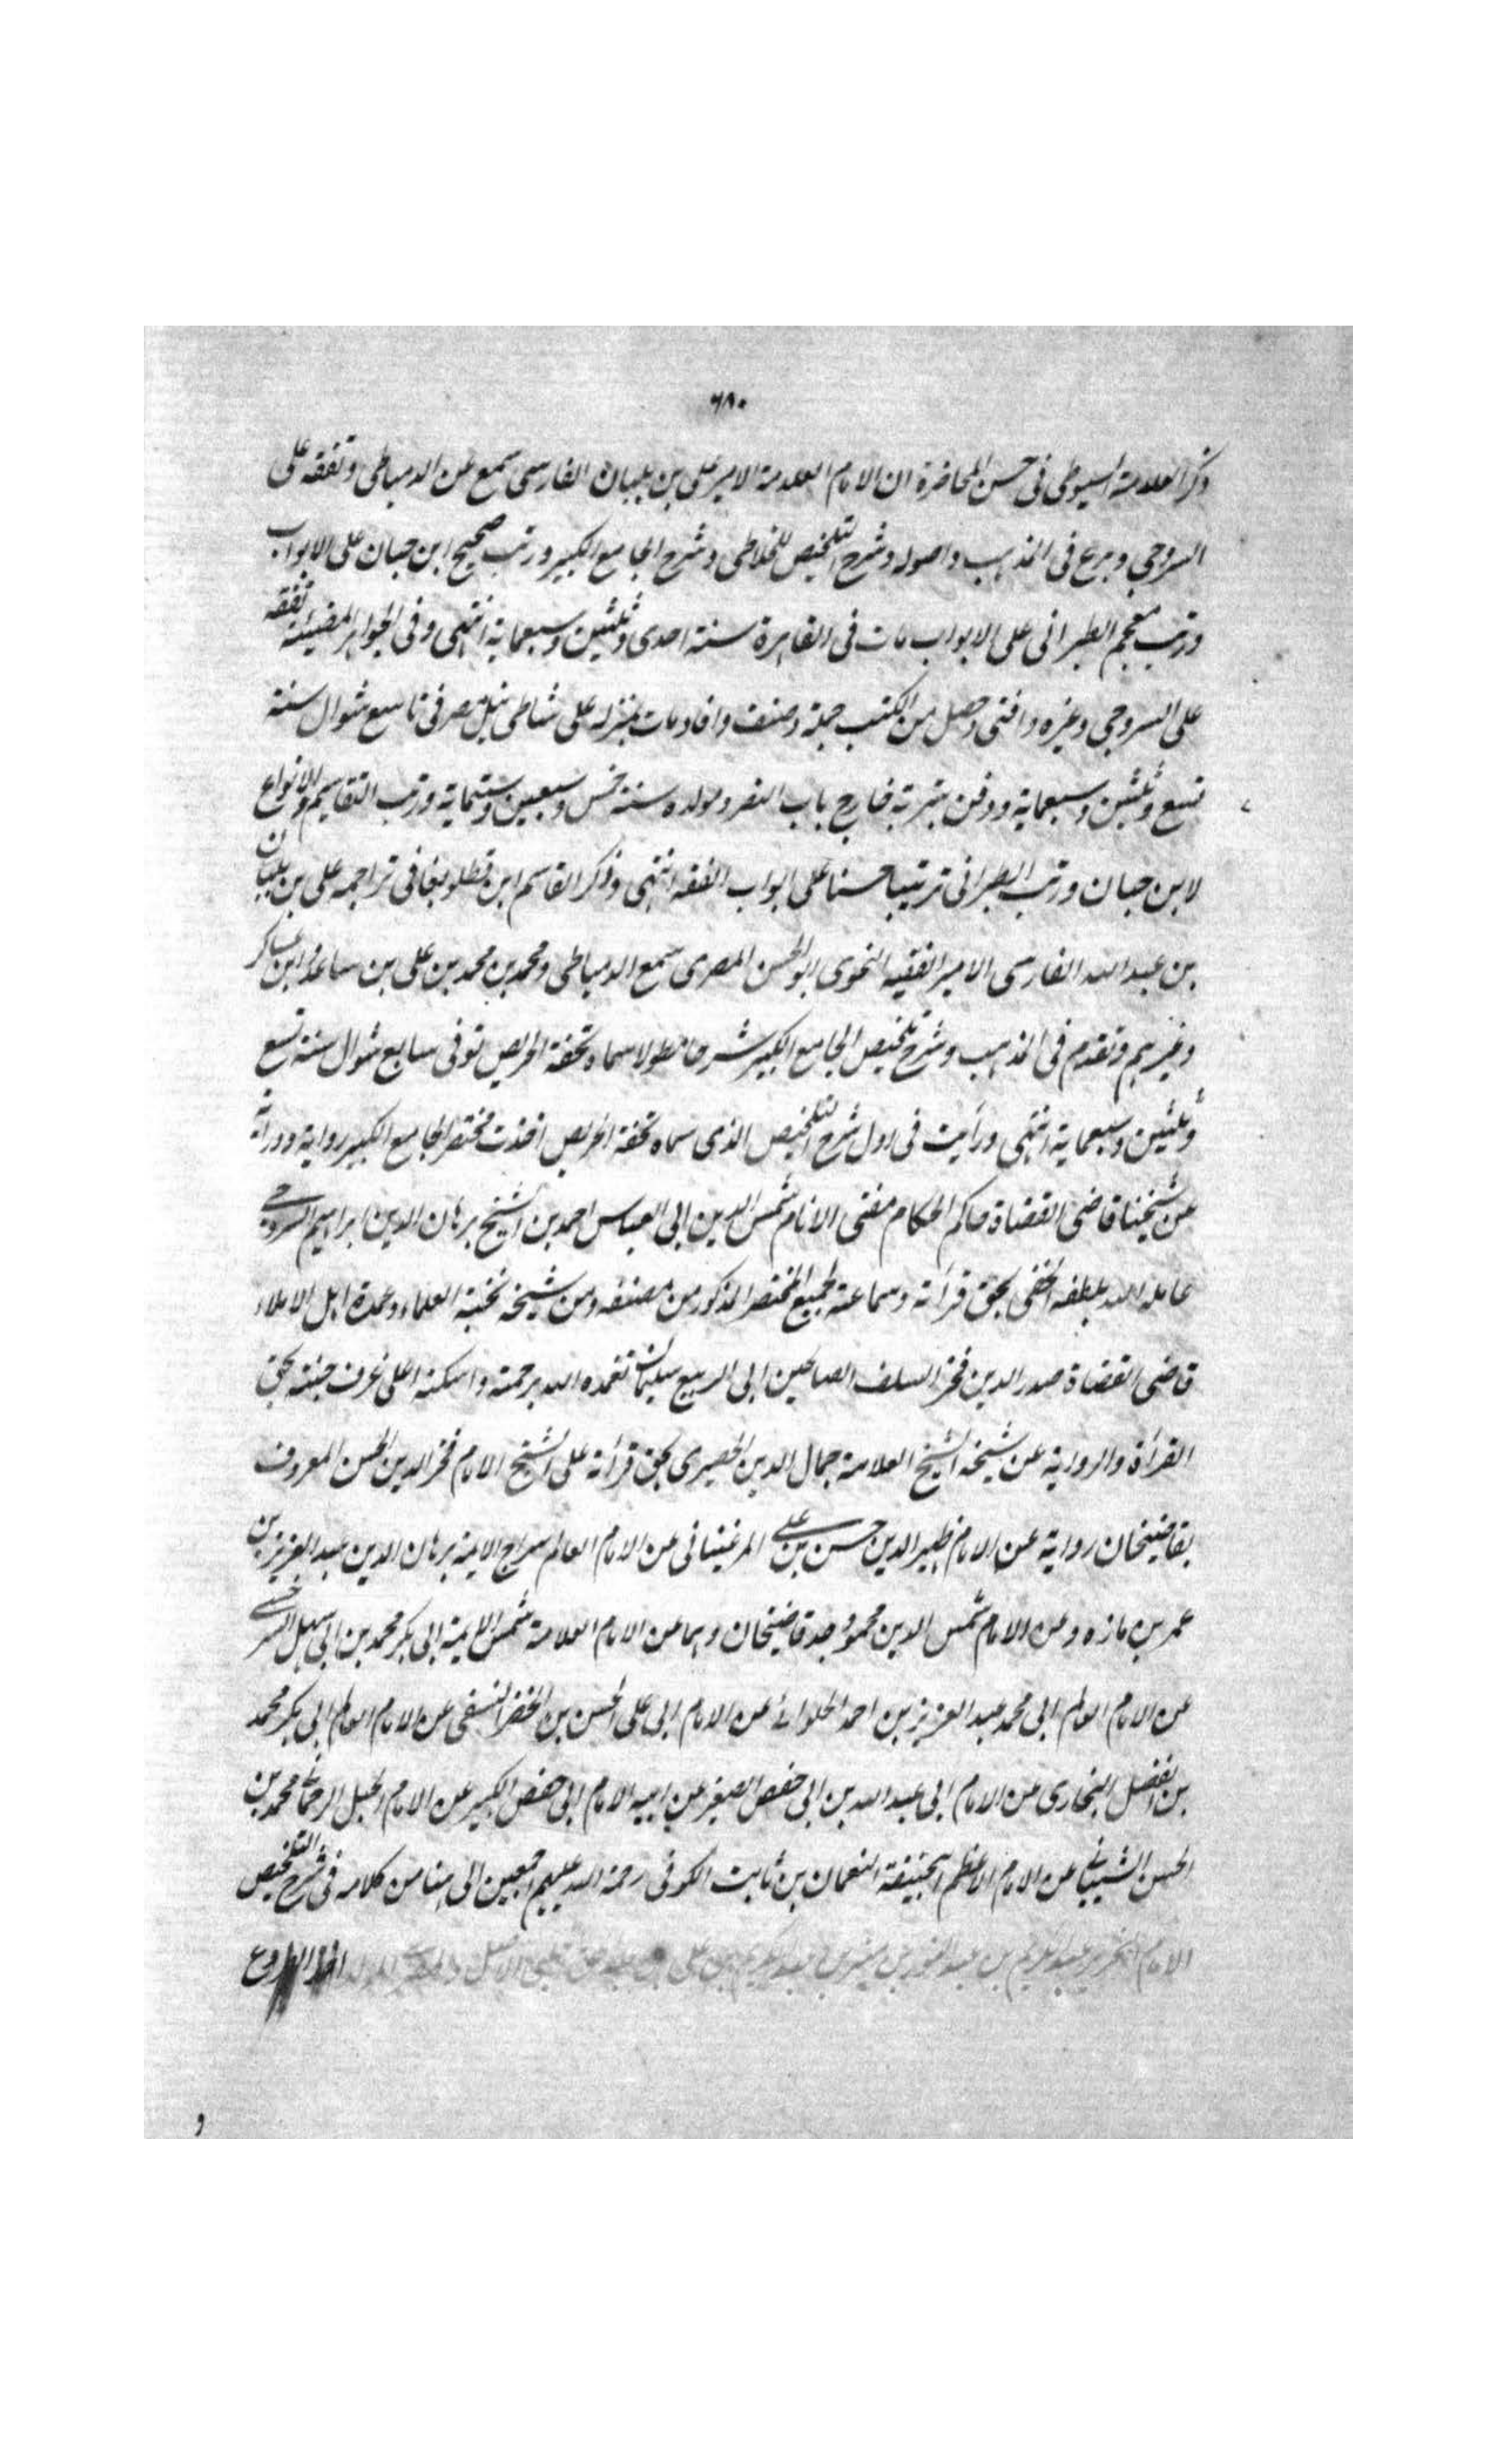 ٦٨٠
ذكر العلامة السيوطى فى حسن المحاضرة ان الامام العلامة الامير على بن بلبان الفارسى سمع من الدمياطى وتفقه على
السروجى وبرع فى المذهب واصوله وشرح التلخيص للخلاطى وشرح الجامع الكبير ورتب صحيح ابن حبان على الابواب
ورتب معجم الطبرانى على الابواب مات فى القاهرة سنة احدى وثلثين وسبعماية انتهى وفى الجواهر المضيئة تفقه
على السروجى وغيره وافتى وحصل من الكتب جملة وصنف وافاد مات بمنزله على شاطى نيل مصر فى تاسع شوال سنة
تسع وثلثين وسبعماية ودفن بتربته خارج باب النصر ومولده سنة خمس وسبعين وستماية ورتب التقاسيم والانواع
لابن حبان ورتب الطبرانى ترتيبا حسنا على ابواب الفقه انتهى وذكر القاسم ابن قطلوبغا فى تراجمه على بن بلبان
بن عبد الله الفارسى الامير الفقيه النحوى ابو الحسن المصرى سمع الدمياطى ومحمد بن محمد بن على بن ساعد وابن عساكر
وغيرهم وتقدم فى المذهب وشرح تلخيص الجامع الكبير شرحا مطولا سماه تحفة الحريص توفى سابع شوال سنة تسع
وثلثين وسبعماية انتهى ورأيت فى اول شرح التلخيص الذى سماه تحفة الحريص اخذت مختصر الجامع الكبير رواية ودراية
عن شيخنا قاضى القضاة حاكم الحكام مفتى الانام شمس الدين ابى العباس احمد بن الشيخ برهان الدين ابراهيم السروجى
عامله الله بلطفه الخفى بحق قرأته وسماعته لجميع المختصر المذكور من مصنفه ومن شيخه نخبة العلماء وعمدة اهل الاملاء
قاضى القضاة صدر الدين فخر السلف الصالحين ابى الربيع سليمان تغمده الله برحمته واسكنه اعلى غرف جنته بحق
القرأة والرواية عن شيخه الشيخ العلامة جمال الدين الحصيرى بحق قرأته على الشيخ الامام فخر الدين الحسن المعروف
بقاضيخان رواية عن الامام ظهير الدين حسن بن على المرغينانى عن الامام العالم سراج الائمة برهان الدين عبد العزيز بن
عمر بن مازه وعن الامام شمس الدين محمود جد قاضيخان وهما عن الامام العلامة شمس الائمة ابى بكر محمد بن ابى سهل السرخسى
عن الامام العالم ابى محمد عبد العزيز بن احمد الحلوائى عن الامام ابى على الحسن بن الخضر النسفى عن الامام العالم ابى بكر محمد
بن الفضل البخارى عن الامام ابى عبد الله بن ابى حفص الصغير عن ابيه الامام ابى حفص الكبير عن الامام الجبل الربانى محمد بن
الحسن الشيبانى عن الامام الاعظم ابيحنيفة النعمان بن ثابت الكوفى رحمة الله عليهم اجمعين الى هنا من كلامه فى شرح التلخيص
الامام عبد الكريم بن عبد النور بن منير بن عبد الكريم بن على
و